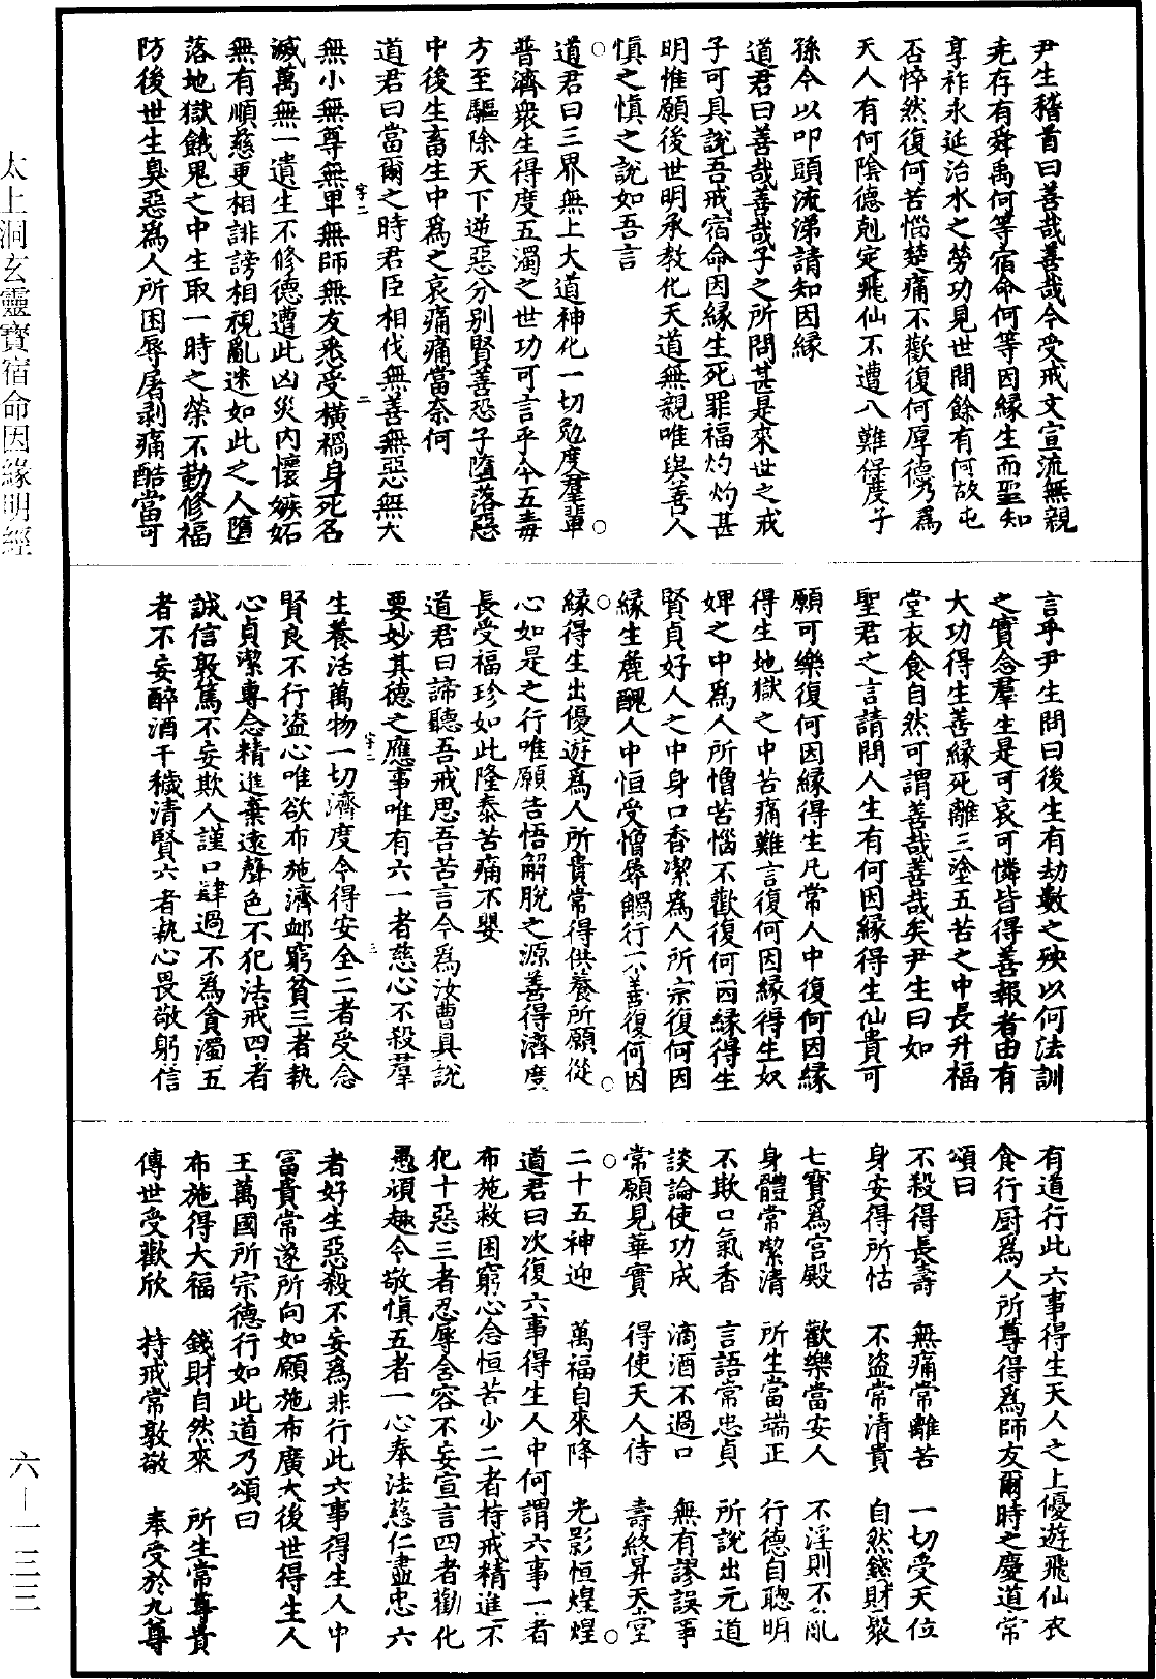 尹生稽首曰善哉善哉今受戒文宣流無親
先存有舜禹何等宿命何等因緣生而聖知
享祚永延治水之勞功見世間餘有何故屯
否悴然復何苦惱楚痛不歡復何厚德乃爲
天人有何陰德剋定飛仙不遭八難保度子
孫今以叩頭流涕請知因緣
道君曰善哉善哉子之所問甚是來世之戒
子可具說吾戒宿命因緣生死罪福灼灼甚
明惟願後世明承教化天道無親唯與善人
慎之慎之說如吾言
道君曰三界無上大道神化一切勉度羣輩
普濟衆生得度五濁之世功可言乎今五毒
方至驅除天下逆惡分別賢善恐子墮落惡
中後生畜生中爲之哀痛痛當奈何
道君曰當爾之時君臣相伐無善無惡無大
字二 二
無小無尊無卑無師無友悉受橫禍身死名
滅萬無一遺生不修德遭此凶災內懷嫉妬
無有順慈更相誹謗相視亂迷如此之人墮
落地獄餓鬼之中生取一時之榮不勤修福
防後世生臭惡爲人所困辱屠剥痛酷當可
言乎尹生問曰後生有劫數之殃以何法訓
之實念羣生是可哀可憐皆得善報者由有
大功得生善緣死離三塗五苦之中長升福
堂衣食自然可謂善哉善哉矣尹生曰如
聖君之言請問人生有何因緣得生仙貴可
願可樂復何因緣得生凡常人中復何因緣
得生地獄之中苦痛難言復何因緣得生奴
婢之中爲人所憎苦惱不歡復何因緣得生
賢貞好人之中身口香潔爲人所宗復何因
緣生麁醜人中恒受憎辱觸行不善復何因
緣得生出優遊爲人所貴常得供養所願從
心如是之行唯願告悟解脫之源善得濟度
長受福珍如此隆泰苦痛不嬰
道君曰諦聽吾戒思吾苦言今爲汝曹具說
要妙其德之應事唯有六一者慈心不殺羣
字二 三
生養活萬物一切濟度令得安全二者受念
賢良不行盜心唯欲布施濟卹窮貧三者執
心貞潔專念精進棄遠聲色不犯法戒四者
誠信敦篤不妄欺人謹口肆過不爲貪濁五
者不妄醉酒干穢清賢六者執心畏敬躬信
有道行此六事得生天人之上優遊飛仙衣
食行厨爲人所尊得爲師友爾時之慶道常
頌曰
不殺得長壽 無痛常離苦 一切受天位
身安得所怙 不盜常清貴 自然錢財聚
七寶爲宮殿 歡樂當安人 不淫則不亂
身體常潔清 所生當端正 行德自聰明
不欺口氣香 言語常忠貞 所說出元道
談論使功成 滴酒不過口 無有謬誤事
常願見華實 得使天人侍 壽終昇天堂
二十五神迎 萬福自來降 光影恒煌煌
道君曰次復六事得生人中何謂六事一者
布施救困窮心念恒苦少二者持戒精進不
犯十惡三者忍辱含容不妄宣言四者勸化
愚頑趣令敬慎五者一心奉法慈仁盡忠六
者好生惡殺不妄爲非行此六事得生人中
富貴常遂所向如願施布廣大後世得生人
王萬國所宗德行如此道乃頌曰
布施得大福 錢財自然來 所生常尊貴
傳世受歡欣 持戒常敦敬 奉受於九尊
太上洞玄靈寶宿命因緣明經
六—一三三